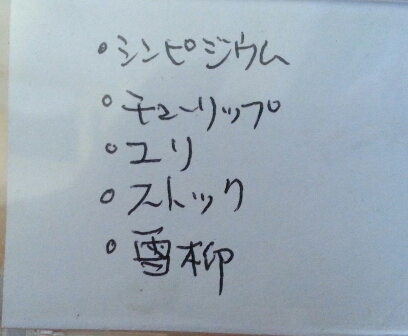 ・シンピジウム
・チューリップ
・ユリ
・ストック
・雪柳